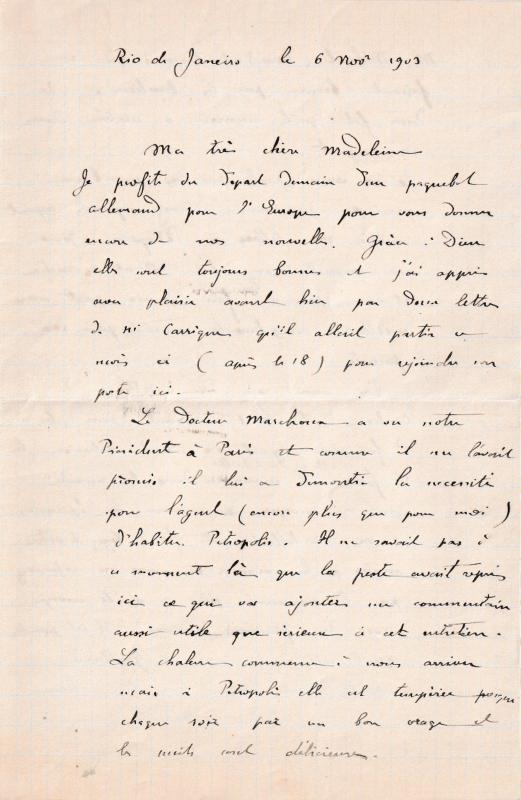 Rio de Janeiro le 6 Nov 1903
Ma très chère Madeleine
Je profite du départ demain d'un paquebot
allemand pour l'Europe pour vous donner
encore de nos nouvelles. Grâce à Dieu
elles sont toujours bonnes et j'ai appris
avec plaisir avant hier par deux lettres
de Mr Carrique qu'il allait partir ce
mois ci (après le 18) pour rejoindre son
poste ici.
Le Docteur Marchoux a vu notre
Président à Paris et comme il me l'avait
promis il lui a démontré la nécessité
pour l'agent (encore plus que pour moi)
d'habiter Petropolis. Il ne savait pas à
ce moment là que la peste avait repris
ici ce qui va ajouter un commentaire
aussi utile que sérieux à cet entretien.
La chaleur commence à nous arriver
mais à Petropolis elle est tempérée presque
chaque soir par un bon orage et
les nuits sont délicieuses.